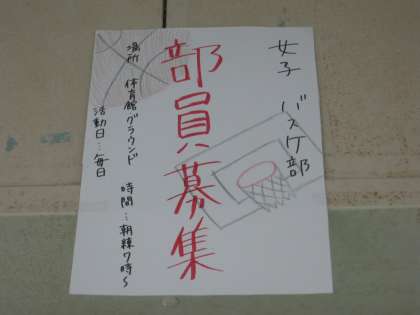 女子 バスケ部
部員募集
場所 体育館グラウンド 時間…朝練7時~
活動日…毎日